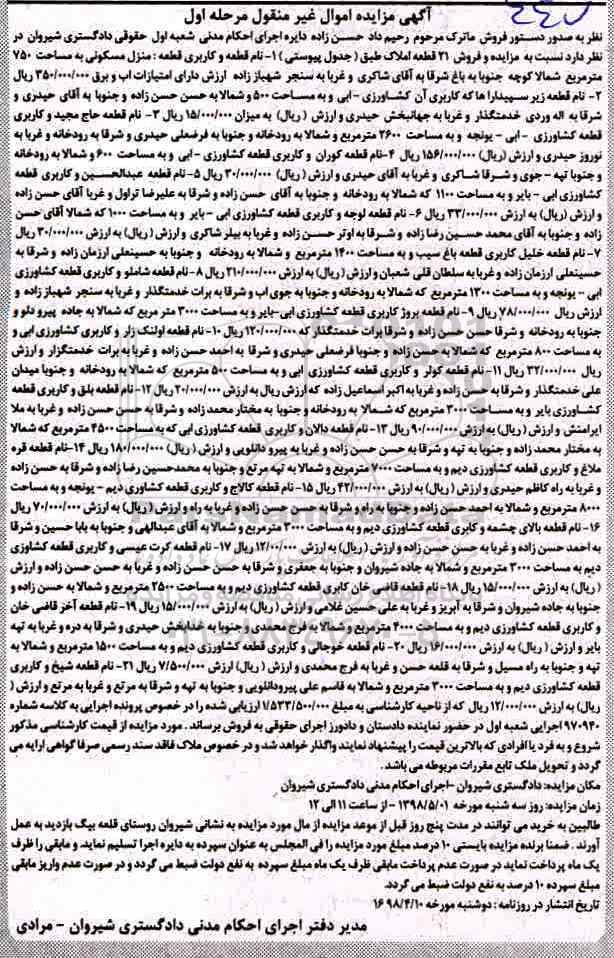 ۲۴۷
آگهی مزایده اموال غیر منقول مرحله اول
نظر به صدور دستور فروش ماترک مرحوم رحیم داد حسن زاده دایره اجرای احکام مدنی شعبه اول حقوقی دادگستری شیروان در
نظر دارد نسبت به مزایده و فروش ۲۱ قطعه املاک طبق (جدول پیوستی) ۱- نام قطعه و کاربری قطعه : منزل مسکونی به مساحت ۷۵۰
مترمربع شمالا کوچه جنوبا به باغ شرقا به آقای شاکری و غربا به سنجر شهباز زاده ارزش دارای امتیازات اب و برق ۳۵۰/۰۰۰/۰۰۰ ریال
۲- نام قطعه زیر سپیدارا ها که کاربری آن کشاورزی - ابی و به مساحت ۵۰۰ و شمالا به حسن حسن زاده و جنوبا به آقای حیدری و
شرقا به اله وردی خدمتگذار و غربا به جهانبخش حیدری و ارزش (ریال) به میزان ۱۵/۰۰۰/۰۰۰ ریال ۳- نام قطعه حاج مجید و کاربری
قطعه کشاورزی - ابی - یونجه و به مساحت ۲۶۰۰ مترمربع و شمالا به رودخانه و جنوبا به فرضعلی حیدری و شرقا به رودخانه و غربا به
نوروز حیدری و ارزش (ریال) ۱۵۶/۰۰۰/۰۰۰ ریال ۴- نام قطعه کوران و کاربری قطعه کشاورزی - ابی و به مساحت ۶۰۰ و شمالا به رودخانه
و جنوبا تپه - جوی و شرقا شاکری و غربا به آقای حیدری و ارزش (ریال) ۳۰/۰۰۰/۰۰۰ ریال ۵- نام قطعه عبدالحسین و کاربری قطعه
کشاورزی ابی - بایر و به مساحت ۱۱۰۰ که شمالا به رودخانه و جنوبا به آقای حسن زاده و شرقا به علیرضا تراول و غربا آقای حسن زاده
و ارزش (ریال) به ارزش ۳۳/۰۰۰/۰۰۰ ریال ۶- نام قطعه لوجه و کاربری قطعه کشاورزی ابی - بایر و به مساحت ۱۰۰۰ که شمالا آقای حسن
زاده و جنوبا به آقای محمد حسین رضا زاده و شرقا به اوتر حسن زاده و غربا به بیلر شاکری و ارزش (ریال) به ارزش ۳۰/۰۰۰/۰۰۰ ریال
۷- نام قطعه خلیل کاربری قطعه باغ سیب و به مساحت ۱۴۰۰ مترمربع و شمالا به رودخانه و جنوبا به حسینعلی ارزمان زاده و شرقا به
حسینعلی ارزمان زاده و غربا به سلطان قلی شعبان و ارزش (ریال) به ارزش ۲۱۰/۰۰۰/۰۰۰ ریال ۸- نام قطعه شاملو و کاربری قطعه کشاورزی
ابی - یونجه و به مساحت ۱۳۰۰ مترمربع که شمالا به رودخانه و جنوبا به جوی اب و شرقا به برات خدمتگذار و غربا به سنجر شهباز زاده و
ارزش ریال ۷۸/۰۰۰/۰۰۰ ریال ۹- نام قطعه بروژ کاربری قطعه کشاورزی ابی-بایر و به مساحت ۳۰۰۰ متر مربع که شمالا به جاده پیرو دلو و
جنوبا به رودخانه و شرقا حسن حسن زاده و شرقا برات خدمتگذار که ۱۲۰/۰۰۰/۰۰۰ ریال ۱۰- نام قطعه اولنک زار و کاربری کشاورزی ابی و
به مساحت ۸۰۰ مترمربع که شمالا به حسن زاده و جنوبا فرضعلی حیدری و شرقا به احمد حسن زاده و غربا به برات خدمتگزار و ارزش
ریال ۳۲/۰۰۰/۰۰۰ ریال ۱۱- نام قطعه کولر و کاربری قطعه کشاورزی ابی و به مساحت ۵۰۰ مترمربع که شمالا به رودخانه و جنوبا میدان
علی خدمتگذار و شرقا به حسن زاده و غربا به اکبر اسماعیل زاده که ارزش ریال به ارزش ۲۰/۰۰۰/۰۰۰ ریال ۱۲- نام قطعه بلق و کاربری قطعه
کشاورزی بایر و به مساحت ۳۰۰۰ مترمربع که شمالا به رودخانه و جنوبا به مختار محمد زاده و شرقا به حسن حسن زاده و غربا به ملا
ایرامنش و ارزش (ریال) به ارزش ۹۰/۰۰۰/۰۰۰ ریال ۱۳- نام قطعه دالان و کاربری قطعه کشاورزی ابی که به مساحت ۴۵۰۰ مترمربع که شمالا
به مختار محمد زاده و جنوبا به تپه و شرقا به حسن حسن زاده و غربا به پیرو دانلویی و ارزش (ریال) ۱۸۰/۰۰۰/۰۰۰ ریال ۱۴- نام قطعه قره
ملاغ و کاربری قطعه کشاورزی دیم و به مساحت ۷۰۰۰ مترمربع و شمالا به تپه مرتع و جنوبا به محمدحسین رضا زاده و شرقا به حسن زاده
و غربا به راه کاظم حیدری و ارزش (ریال) به ارزش ۴۲/۰۰۰/۰۰۰ ریال ۱۵- نام قطعه کالاج و کاربری قطعه کشاوری دیم - یونجه و به مساحت
۸۰۰۰ مترمربع و شمالا به احمد حسن زاده و جنوبا به راه و شرقا به حسن حسن زاده و غربا به راه و ارزش (ریال) به ارزش ۷۰/۰۰۰/۰۰۰ ریال
۱۶- نام قطعه بالای چشمه و کابری قطعه کشاورزی دیم و به مساحت ۳۰۰۰ مترمربع و شمالا به آقای عبدالهی و جنوبا به بابا حسین و شرقا
به احمد حسن زاده و غربا به حسن حسن زاده و ارزش (ریال) به ارزش ۱۲/۰۰۰/۰۰۰ ریال ۱۷- نام قطعه کرت عیسی و کاربری قطعه کشاورزی
دیم به مساحت ۳۰۰۰ مترمربع و شمالا به جاده شیروان و جنوبا به جعفری و شرقا به حسن حسن زاده و غربا به حسن حسن زاده و ارزش
(ریال) به ارزش ۱۵/۰۰۰/۰۰۰ ریال ۱۸- نام قطعه قاضی خان کابری قطعه کشاورزی دیم و به مساحت ۲۵۰۰ مترمربع و شمالا به حسن زاده و
جنوبا به جاده شیروان و شرقا به آبریز و غربا به علی حسین غلامی و ارزش (ریال) به ارزش ۱۵/۰۰۰/۰۰۰ ریال ۱۹- نام قطعه آخر قاضی خان
و کاربری قطعه کشاورزی دیم و به مساحت ۴۰۰۰ مترمربع و شمالا به فرج محمدی و جنوبا به خدابخش حیدری و شرقا به دره و غربا به تپه
بایر و ارزش (ریال) به ارزش ۱۶/۰۰۰/۰۰۰ ریال ۲۰- نام قطعه خوجالی و کاربری قطعه کشاورزی دیم و به مساحت ۱۵۰۰ مترمربع و شمالا به
تپه و جنوبا به راه مسیل و شرقا به قلعه حسن و غربا به فرج محمدی و ارزش (ریال) ارزش ۷/۵۰۰/۰۰۰ ریال ۲۱- نام قطعه شیخ و کاربری
قطعه کشاورزی دیم و به مساحت ۳۰۰۰ مترمربع و شمالا به قاسم علی پیرودانلویی و جنوبا به تپه و شرقا به مرتع و غربا به مرتع و ارزش (
ریال) به ارزش ۱۲/۰۰۰/۰۰۰ ریال که از ناحیه کارشناسی به مبلغ ۱/۵۳۳/۵۰۰/۰۰۰ ارزیابی شده را در خصوص پرونده اجرایی به کلاسه شماره
۹۷۰۹۴۰ اجرایی شعبه اول در حضور نماینده دادستان و دادورز اجرای حقوقی به فروش برساند . مورد مزایده از قیمت کارشناسی مذکور
شروع و به فرد یا افرادی که بالاترین قیمت را پیشنهاد نمایند واگذار خواهد شد و در خصوص ملاک فاقد سند رسمی صرفا گواهی ارایه می
گردد و تحویل ملک تابع مقررات مربوطه می باشد .
مکان مزایده: دادگستری شیروان -اجرای احکام مدنی دادگستری شیروان
زمان مزایده: روز سه شنبه مورخه ۱۳۹۸/۵/۰۱ - از ساعت ۱۱ الی ۱۲
طالبین به خرید می توانند در مدت پنج روز قبل از موعد مزایده از مال مورد مزایده به نشانی شیروان روستای قلعه بیگ بازدید به عمل
آورند . ضمنا برنده مزایده بایستی ۱۰ درصد مبلغ مورد مزایده را فی المجلس به عنوان سپرده به دایره اجرا تسلیم نماید. و مابقی را ظرف
یک ماه پرداخت نماید در صورت عدم پرداخت مابقی ظرف یک ماه مبلغ سپرده به نفع دولت ضبط می گردد و در صورت عدم واریز مابقی
مبلغ سپرده ۱۰ درصد به نفع دولت ضبط می گردد.
تاریخ انتشار در روزنامه : دوشنبه مورخه ۹۸/۴/۱۰ ۱۶
مدیر دفتر اجرای احکام مدنی دادگستری شیروان - مرادی